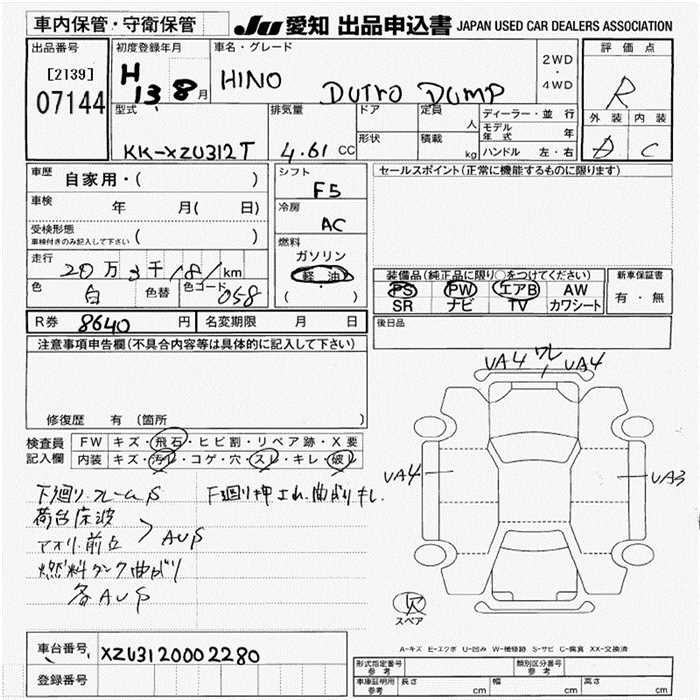 車内保管・守衛保管 JU 愛知 出品申込書 JAPAN USED CAR DEALERS ASSOCIATION
出品番号 初度登録年月 車名・グレード 2WD・4WD 評価点
[2139] H 13 8月 HINO Dutro Dump R
07144 型式 排気量 ドア 定員 人 ディーラー・並行 外装 内装
KK-XZU312T 4.61 CC 形状 積載 kg モデル年式 年 D C
ハンドル 左・右
車歴 自家用・( ) シフト F5 セールスポイント(正常に機能するものに限ります)
車検 年 月( 日) 冷房 AC
受検形態 車検付きのみ記入して下さい ( )
燃料 ガソリン・軽油 ( )
走行 20万3千181km
色 白 色替 色コード 058
装備品(純正品に限り○をつけてください) 新車保証書
PS PW エアB AW 有・無
SR ナビ TV カワシート
R券 8640円 名変期限 月 日 後日品
注意事項申告欄(不具合内容等は具体的に記入して下さい)
修復歴 有(箇所 )
UA4 ワレ UA4
検査員記入欄 FW キズ・飛石・ヒビ割・リペア跡・X要
内装 キズ・汚れ・コゲ・穴・スレ・キレ・破レ
UA4 UA3
下廻り・フレームS 下廻り押され、曲がりキレ
荷台床波
アオリ、前立 > AUS
燃料タンク曲がり
各AUS
欠
スペア
A-キズ E-エクボ U-凹み W-補修跡 S-サビ C-腐食 XX-交換済
車台番号 XZU3120002280
登録番号
形式指定番号 参考 類別区分番号 参考
車庫証明用 参考 長さ cm 幅 cm 高さ cm